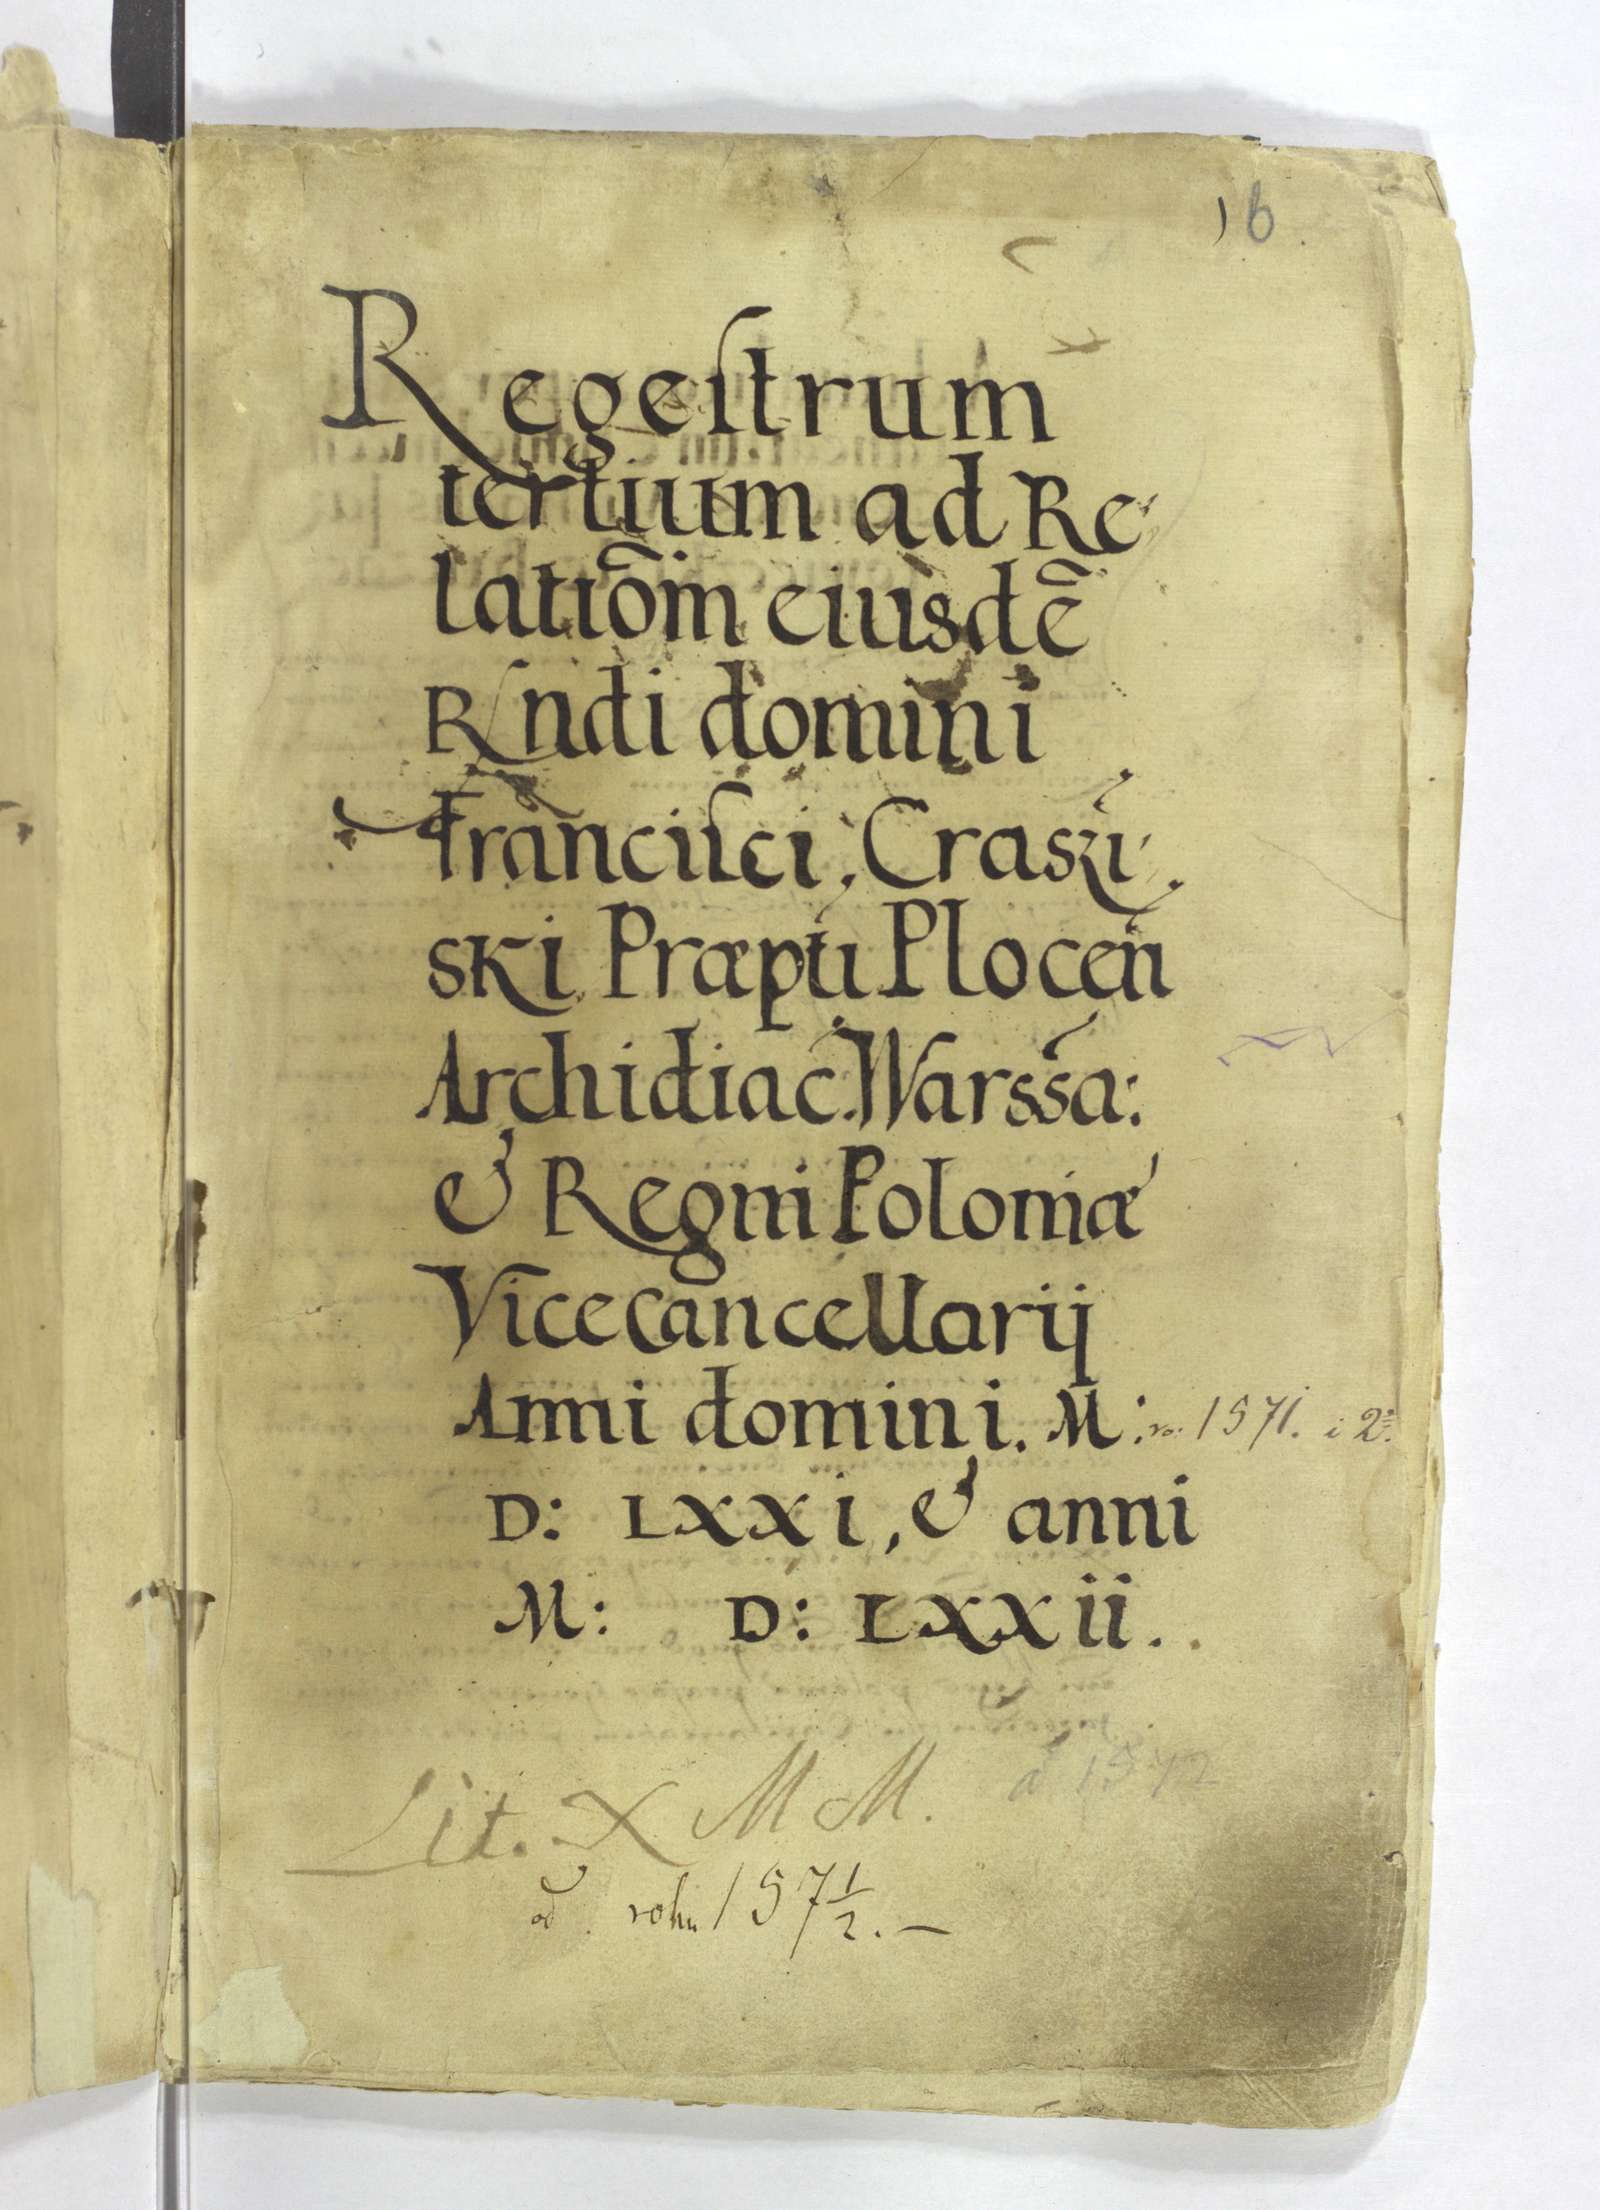 16
Regestrum
tertium ad Re
latiōm eiusdē
Rndi domini
Francisci Craszi
ski Præpti Plocen
Archidiac: Warssa:
& Regni Poloniæ
Vicecancellarij
Anni domini. M: ro: 1571. i 2
D: LXXi, & anni
M: D: LXXii.
a 1572
Lit. X M M.
od roku 157½. —